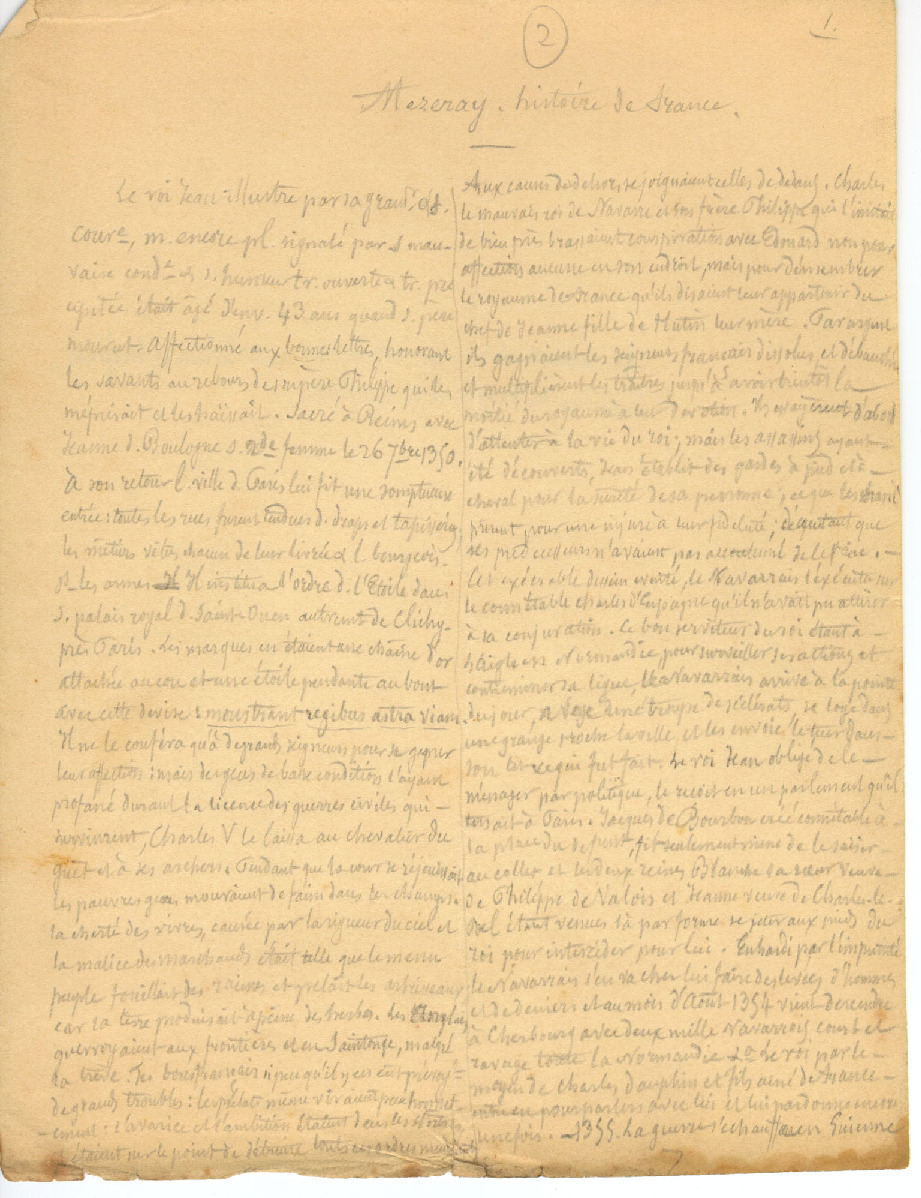 2
1.
Mezeray. histoire de France.
Le roi Jean illustre par sa grand.r
cour.e, m. encore pl. signalé par s. mau-
vaise cond.te et s. humeur tr. ouverte et tr. pré
cipitée était âgé d'env. 43 ans quand s. père
mourut. Affectionné aux bonnes lettres, honorant
les savants au rebours de son père Philippe qui les
méprisait et les haïssait. Sacré à Reims avec
Jeanne d. Boulogne s. 2de femme le 26 7bre 1350.
à son retour l. ville d. Paris lui fit une somptueuse
entrée: toutes les rues furent tendues d. draps et tapisseries
les métiers vêtus chacun de leur livrée et l. bourgeois
s. les armes. Il institua l'ordre d. l'Etoile dans
s. palais royal d. Saint-Ouen autrement de Clichy-
près Paris. Les marques en étaient une chaîne d'or
attachée au cou et une étoile pendante au bout
avec cette devise: monstrant regibus astra viam.
Il ne le conféra qu'à de grands seigneurs pour se gagner
leur affection: mais des gens de basse condition l'ayant
profané durant la licence des guerres civiles qui-
survinrent, Charles V le laissa au chevalier du
guet et à ses archers. Pendant que la cour se réjouissait
les pauvres gens mouraient de faim dans les champs.
la cherté des vivres, causée par la rigueur du ciel et
la malice des marchands était telle que le menu
peuple fouillait des racines et pelait les arbrisseaux
car la terre produisait à peine des herbes. Les Anglais
guerroyaient aux frontières et en Saintonge, malgré
la trêve.
de grands troubles: les prélats même vivaient peu honnêt-
ement: l'avarice et l'ambition étaient dans les
étaient sur le point de détruire tous ces ordres
Aux causes de dehors, se joignaient celles de dedans. Charles
le mauvais roi de Navarre et son frère Philippe qui l'imitait
de bien près brassaient conspiration avec Edouard non pour
affection aucune en son endroit, mais pour démembrer
le royaume de France qu'ils disaient leur appartenir du
chef de Jeanne fille de Hutin leur mère.
ils gagnaient les seigneurs français dissolus et débauchés
et multiplièrent les traîtres jusqu'à avoir bientôt la
moitié du royaume à leur dévotion. Ils essayèrent d'abord
d'attenter à la vie du roi; mais les assassins ayant-
été découverts, Jean établit des gardes à pied et à-
cheval pour la sûreté de sa personne, ce que les
prirent pour une injure à leur fidélité, que
ses prédécesseurs n'avaient pas accoutumé de le faire.-
Cet exécrable dessein éventé, le Navarrais l'exécuta sur
le connétable Charles d'Espagne qu'il n'avait pu attirer
à sa conjuration. Ce bon serviteur du roi étant à-
Laigle en Normandie, pour surveiller ses actions et
contreminer sa ligue, le Navarrais arrive à la pointe
du jour, avec une troupe de scélérats, se loge dans
une grange proche la ville, et les envoie le tuer dans-
son lit ce qui fut fait. Le roi Jean obligé de le-
ménager par politique, le reçoit en un parlement qu'il
tenait à Paris. Jacques de Bourbon créé connétable à-
la place du défunt, fit seulement mine de le saisir-
au collet et les deux reines Blanche sa sœur veuve-
de Philippe de Valois et Jeanne veuve de Charles-le-
Bel étant venues là par forme se jeter aux pieds du
roi pour intercéder pour lui. Enhardi par l'impunité
le Navarrais s'en va chez lui faire des levées d'hommes
et de deniers et au mois d'Août 1354 vient descendre
à Cherbourg avec deux mille Navarrois court et
ravage toute la Normandie. Le roi par le-
moyen de Charles, dauphin et fils aîné de France-
entre en pourparlers avec lui et lui pardonne encore
une fois.-1355. La guerre s'échauffe en Guienne